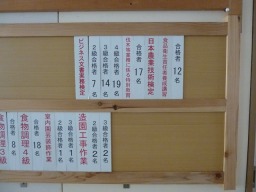 合格者 12名
日本農業技術検定
合格者 17名
4級合格者 19名
3級合格者 14名
2級合格者 7名
ビジネス文書実務検定
造園工事作業
3級合格者 2名
2級合格者 2名
室内園芸装飾作業
3級合格者 11名
食物調理4級
合格者 18名
食物調理3級
合格者 8名